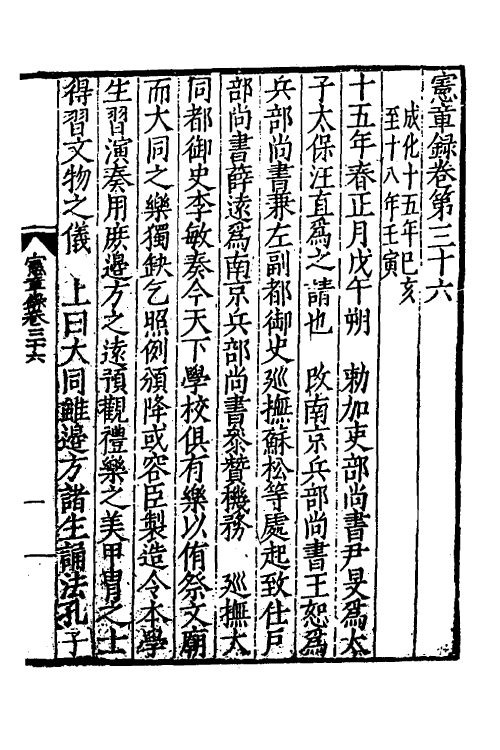 憲章録卷第三十六
成化十五年己亥
至十八年壬寅
十五年春正月戊午朔　勅加吏部尚書尹旻爲太
子太保汪直爲之請也　改南京兵部尚書王恕爲
兵部尚書兼左副都御史廵撫蘇松等處起致仕戸
部尚書薛遠爲南京兵部尚書叅贊機務　廵撫大
同都御史李敏奏今天下學校俱有樂以侑祭文廟
而大同之樂獨缺乞照例頒降或容臣製造令本學
生習演奏用庶邊方之遠預觀禮樂之美甲胄之士
得習文物之儀　上曰大同雖邊方諸生誦法孔子
憲章錄卷三十六
一